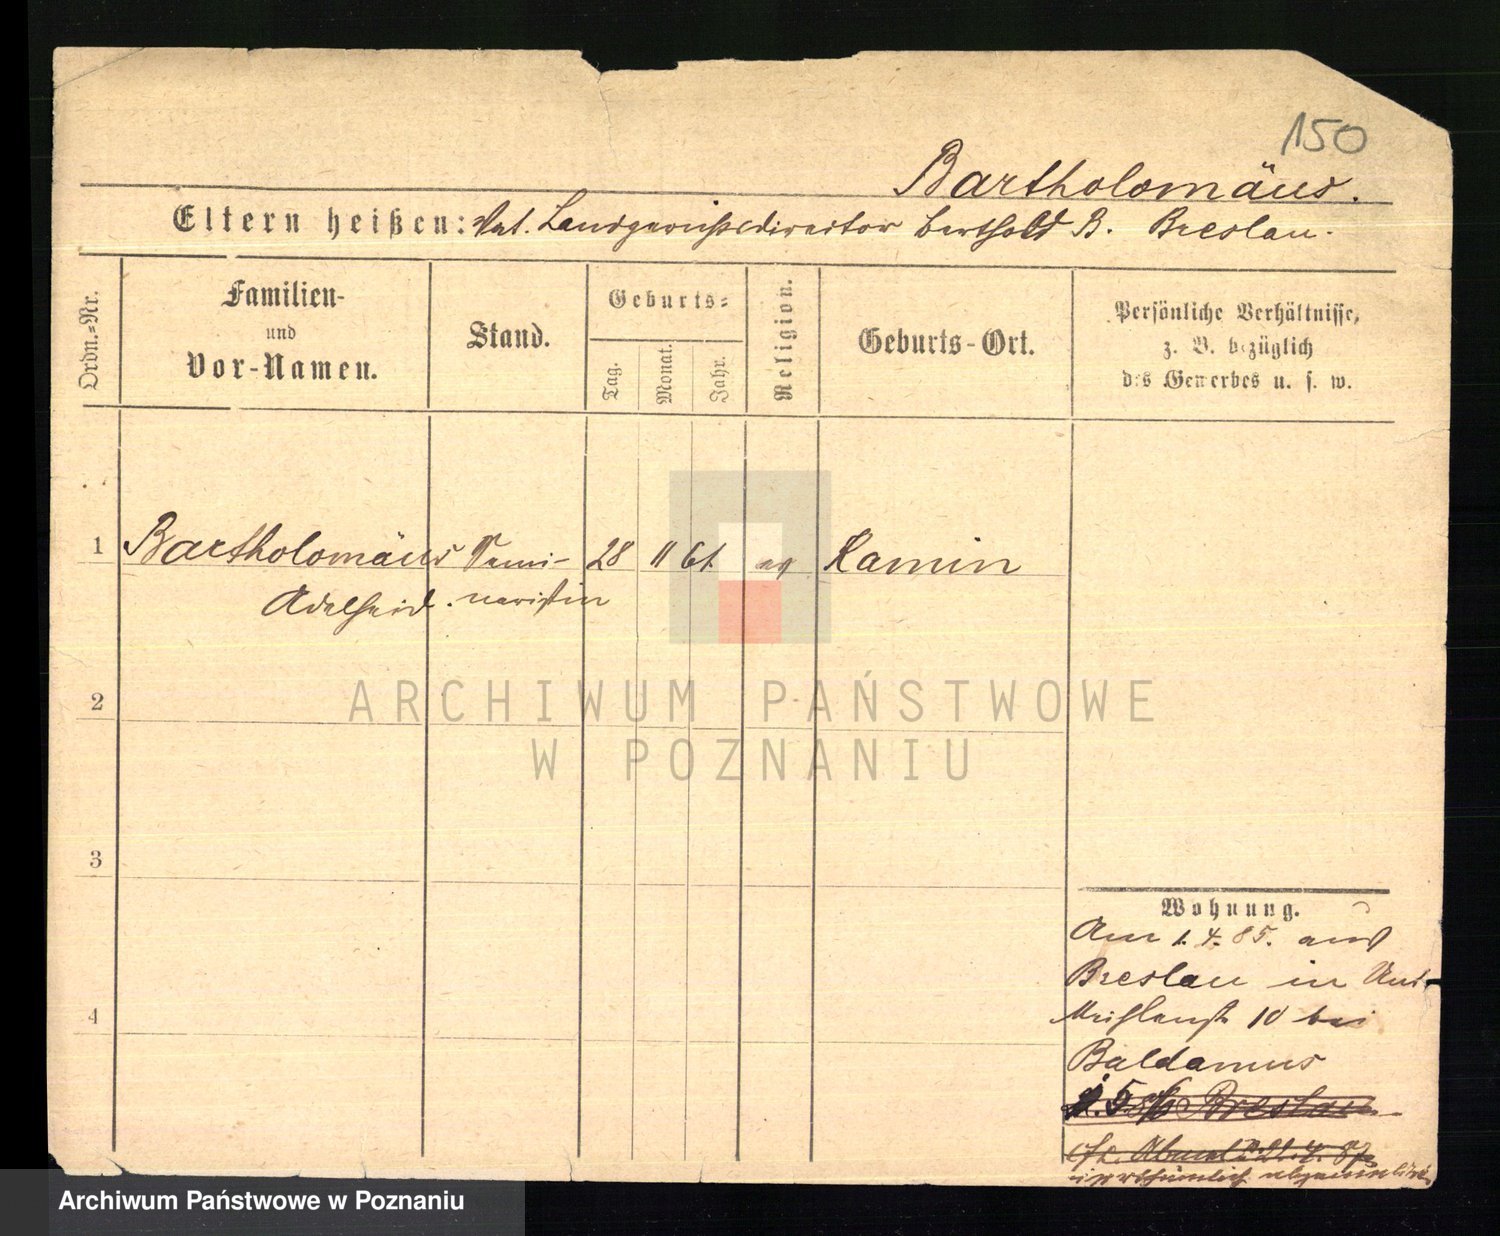 150
Bartholomäus.
Eltern heißen: Vat. Landgerichtsdirector Berthold B. Breslau.
Ordn.-Nr.
Familien- und Vor-Namen.
Stand.
Geburts-
Tag.
Monat.
Jahr.
Religion.
Geburts-Ort.
Persönliche Verhältnisse,
z. B. bezüglich
des Gewerbes u. s. w.
1 Bartholomäus Semi- 28 11 61. ev Kamin
Adelheid. naristin
2
3
4
ARCHIWUM PAŃSTWOWE
W POZNANIU
Wohnung.
Am 1. 4. 85. aus
Breslau in
10 bei
Baldamus
Breslau
irrthümlich
Archiwum Państwowe w Poznaniu